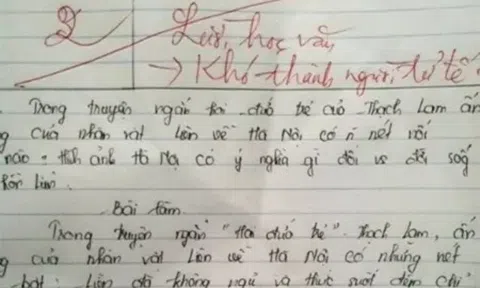 2 Lười học văn,
→ Khó thành người tử tế.
Trong truyện ngắn hai đứa trẻ của Thạch Lam ấn
g của nhân vật Liên về Hà Nội có n nét nổi
nào. Hình ảnh Hà Nội có ý nghĩa gì đối vs đời sống
Liên.
Bài làm
Trong truyện ngắn "Hai đứa trẻ". Thạch Lam, ấn
g của nhân vật Liên về Hà Nội có những nét
bật: Liên đã không ngủ và thức suốt đêm chỉ